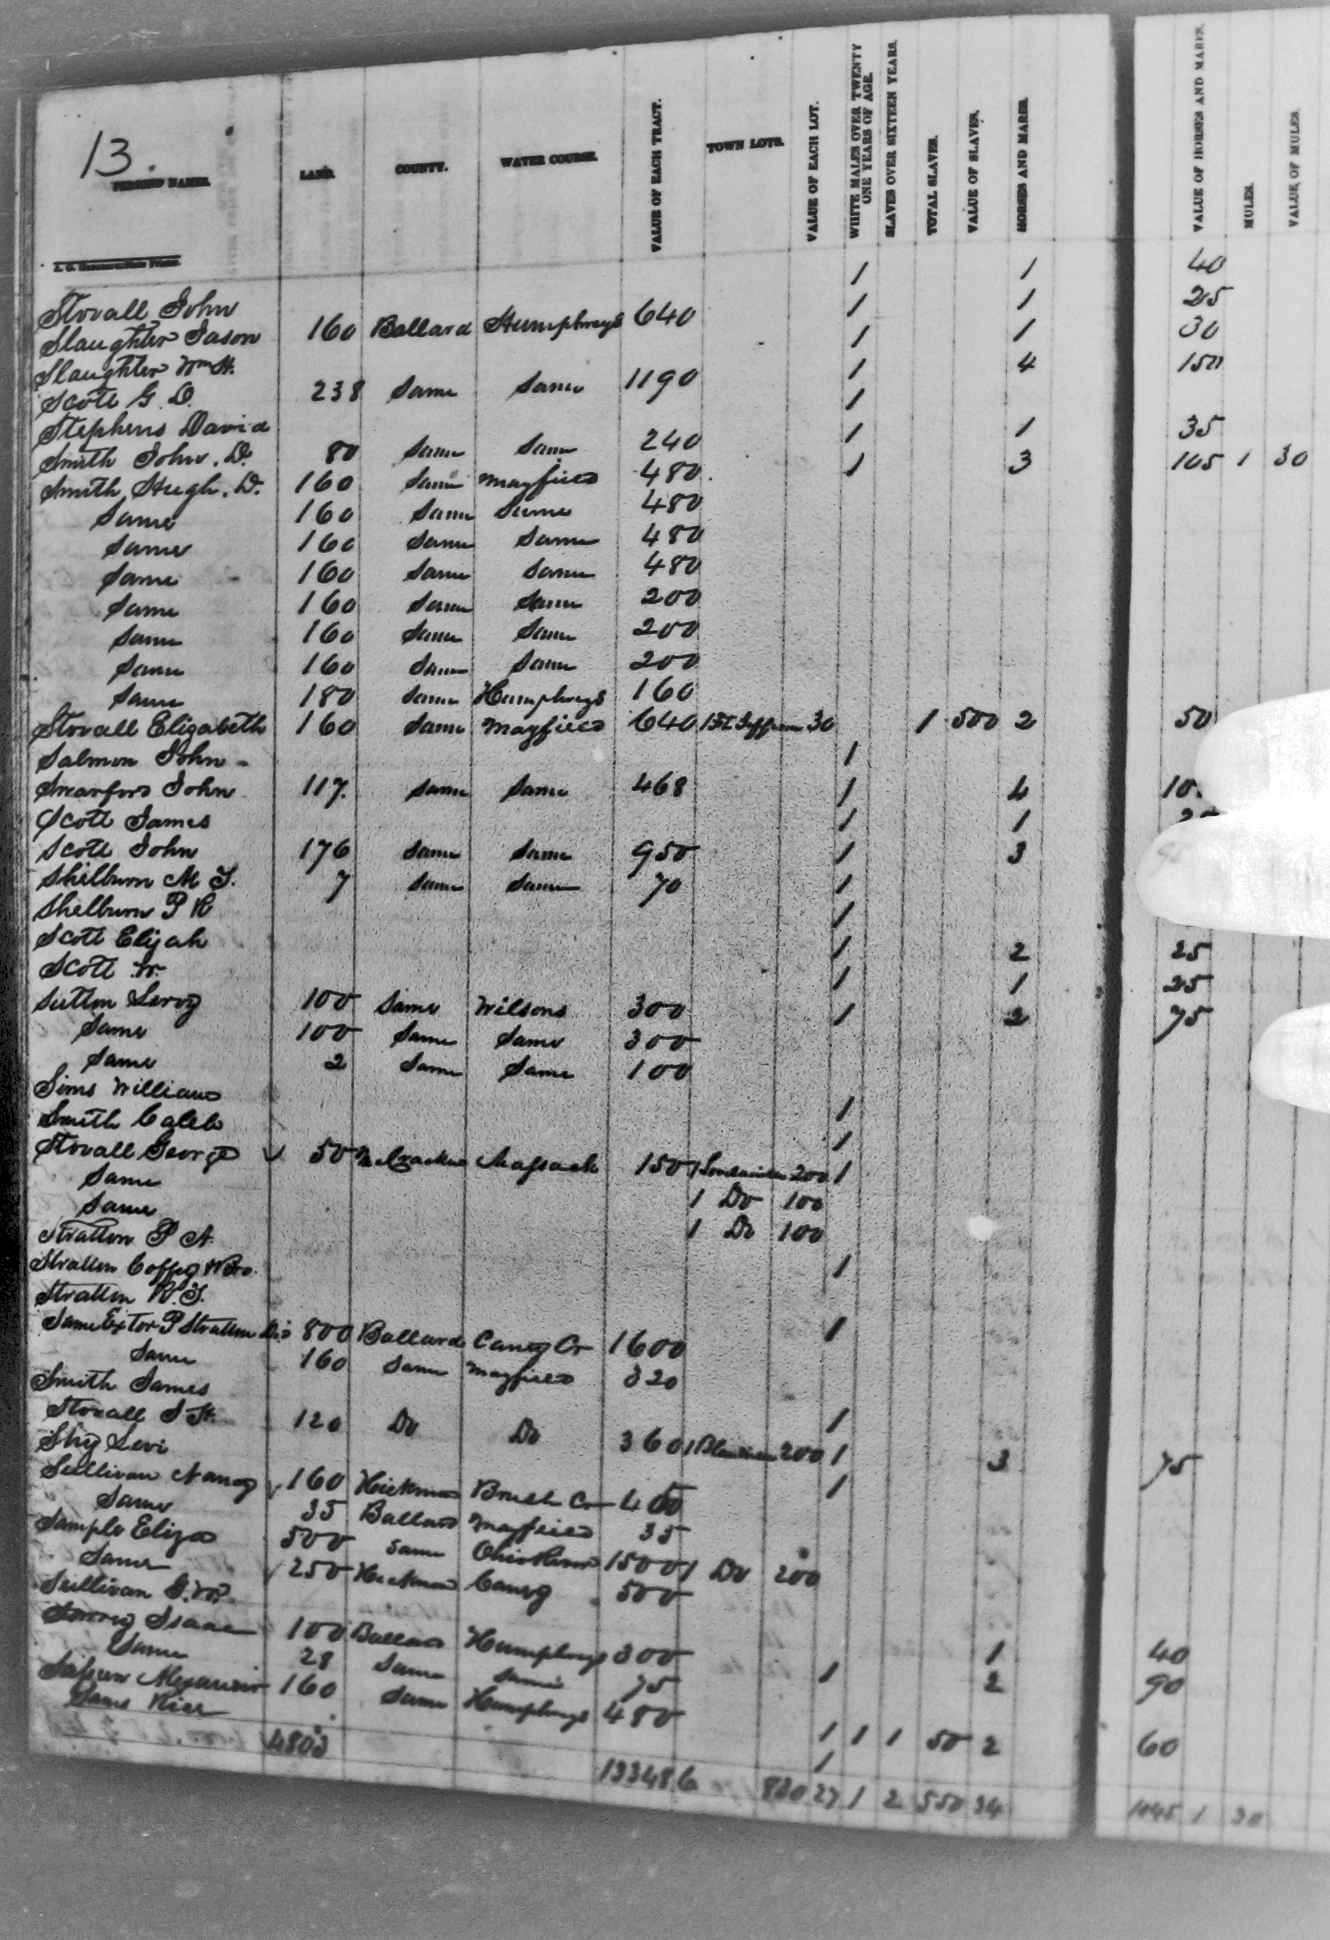 13.
PERSONS' NAMES. LAND. COUNTY. WATER COURSE. VALUE OF EACH TRACT. TOWN LOTS. VALUE OF EACH LOT. WHITE MALES OVER TWENTY ONE YEARS OF AGE. SLAVES OVER SIXTEEN YEARS. TOTAL SLAVES. VALUE OF SLAVES. HORSES AND MARES. VALUE OF HORSES AND MARES. MULES. VALUE OF MULES
Stovall John 1 1 40
Slaughter Jason 160 Ballard Humphreys 640 1 1 25
Slaughter Wm H. 1 1 30
Scott G. D. 238 Same Same 1190 1 4 150
Stephens David 1
Smith John. D. 80 Same Same 240 1 1 35
Smith Hugh. D. 160 Same Mayfield 480 1 3 105 1 30
Same 160 Same Same 480
Same 160 Same Same 480
Same 160 Same Same 480
Same 160 Same Same 200
Same 160 Same Same 200
Same 160 Same Same 200
Same 180 Same Humphreys 160
Stovall Elizabeth 160 Same Mayfield 640 30 1 500 2 50
Salmon John 1
Swearford John 117. Same Same 468 1 4
Scott James 1 1
Scott John 176 Same Same 950 1 3
Shelburn M J. 7 Same Same 70 1
Shelburn P R 1
Scott Elijah 1 2 25
Scott W. 1 1 25
Sutton Leroy 100 Same Wilsons 300 1 2 75
Same 100 Same Same 300
Same 2 Same Same 100
Sims William 1
Smith Caleb 1
Stovall George 50 McCracken Massack 150 1 200 1
Same 1 Do 100
Same 1 Do 100
Stratton P A.
Stratton Coffey & Bro. 1
Stratton R. J.
Same Extor P Stratton Dcd 800 Ballard Caney Cr 1600 1
Same 160 Same Mayfield 320
Smith James 1
Stovall J H. 120 Do Do 360 1 Blandville 200 1 3 75
Shy Levi 1
Sullivan Nancy 160 Hickman Brush Cr 400
Same 35 Ballard Mayfield 35
Sample Eliza 500 Same Ohio River 1500 1 Do 200
Same 250 Hickman Caney 500
Sullivan G. W.
Isaac 100 Ballard Humphreys 300 1 40
Same 28 Same Same 75 1 2 90
160 Same Humphreys 480
Sams 1 1 1 50 2 60
1
4803 830 27 1 2 550 34 1045 1 30